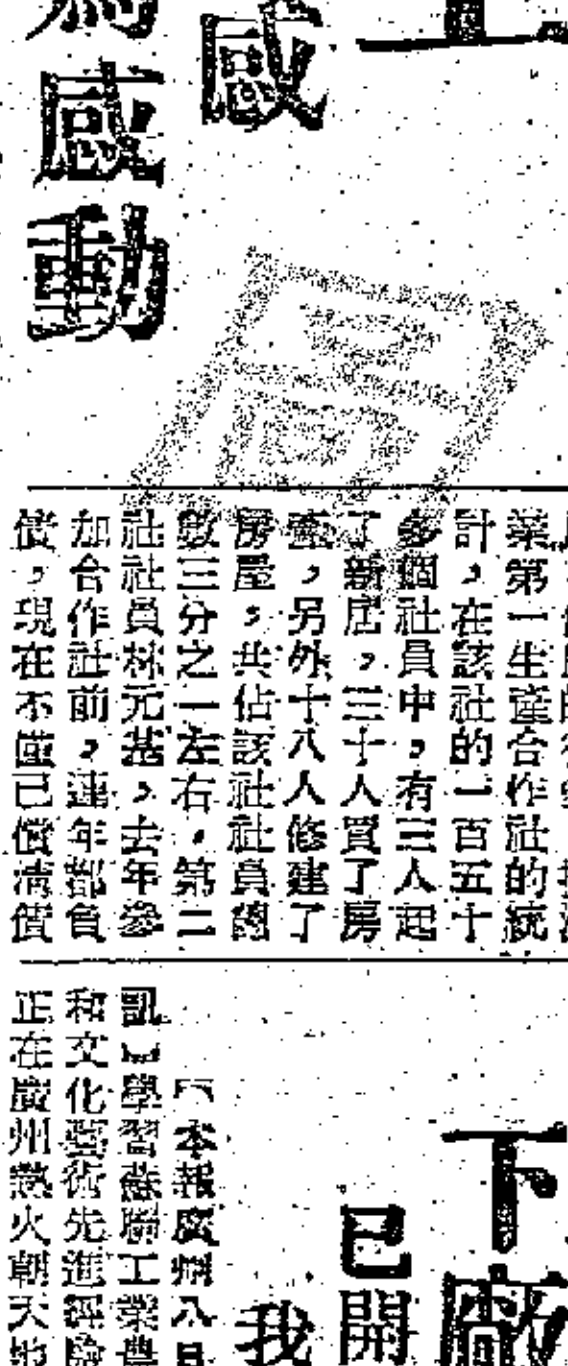 感
為感動
業第一生產合作社的統
計,在該社的一百五十
多個社員中,有三人起
了新居,三十人買了房
產,另外十八人修建了
房屋,共佔該社社員總
數三分之一左右。第二
社社員林元基,去年參
加合作社前,連年都負
債,現在不僅已償清債
下廠
已開
我
【本報廣州八日
凱】學習蘇聯工業農
和文化藝術先進經驗
正在廣州熱火朝天地